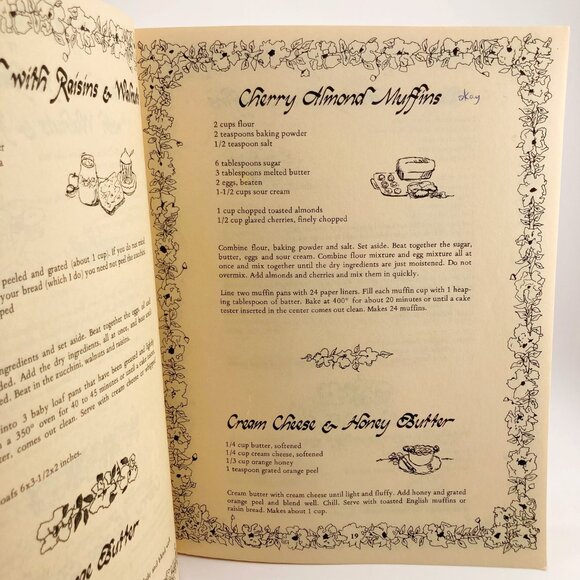 with Raisins & 
peeled and grated (about 1 cup). If you do not mind
your bread (which I do) you need not peel the zucchini.
ingredients and set aside. Beat together the egg, oil and
Add the dry ingredients, all at once, and beat until
Beat in the zucchini, walnuts and raisins.
into 3 baby loaf pans that have been greased and lightly
a 350° oven for 40 to 45 minutes or until a cake tester,
comes out clean. Serve with cream cheese or whipped
loafs 6x3-1/2x2 inches.
Butter
Cherry Almond Muffins okay
2 cups flour
2 teaspoons baking powder
1/2 teaspoon salt
6 tablespoons sugar
3 tablespoons melted butter
2 eggs, beaten
1-1/2 cups sour cream
1 cup chopped toasted almonds
1/2 cup glazed cherries, finely chopped
Combine flour, baking powder and salt. Set aside. Beat together the sugar,
butter, eggs and sour cream. Combine flour mixture and egg mixture all at
at once and mix together until the dry ingredients are just moistened. Do not
overmix. Add almonds and cherries and mix them in quickly.
Line two muffin pans with 24 paper liners. Fill each muffin cup with 1 heap-
ing tablespoon of batter. Bake at 400° for about 20 minutes or until a cake
tester inserted in the center comes out clean. Makes 24 muffins.
Cream Cheese & Honey Butter
1/4 cup butter, softened
1/4 cup cream cheese, softened
1/3 cup orange honey
1 teaspoon grated orange peel
Cream butter with cream cheese until light and fluffy. Add honey and grated
orange peel and blend well. Chill. Serve with toasted English muffins or
raisin bread. Makes about 1 cup.
19